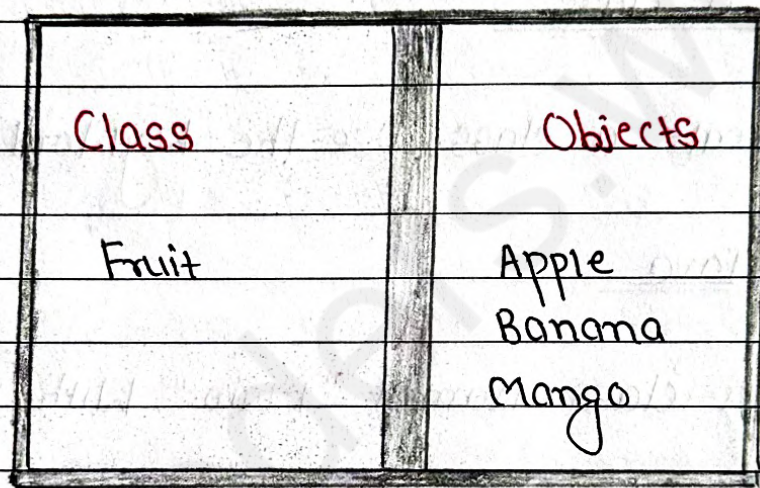 Class Objects
Fruit Apple
Banana
Mango